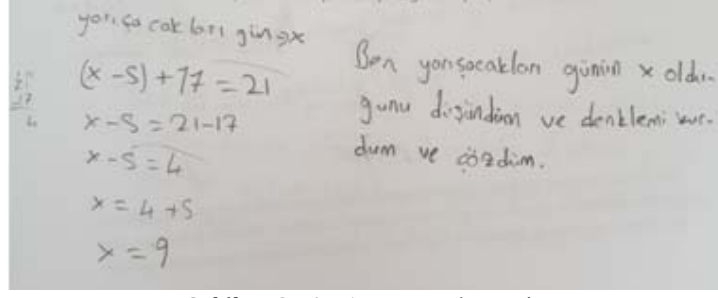 yarışacakları gün⇒x
(x-5)+17=21
x-5=21-17
x-5=4
x=4+5
x=9
21
17
4
Ben yarışacakları günün x oldu-
ğunu düşündüm ve denklemi kur-
dum ve çözdüm.